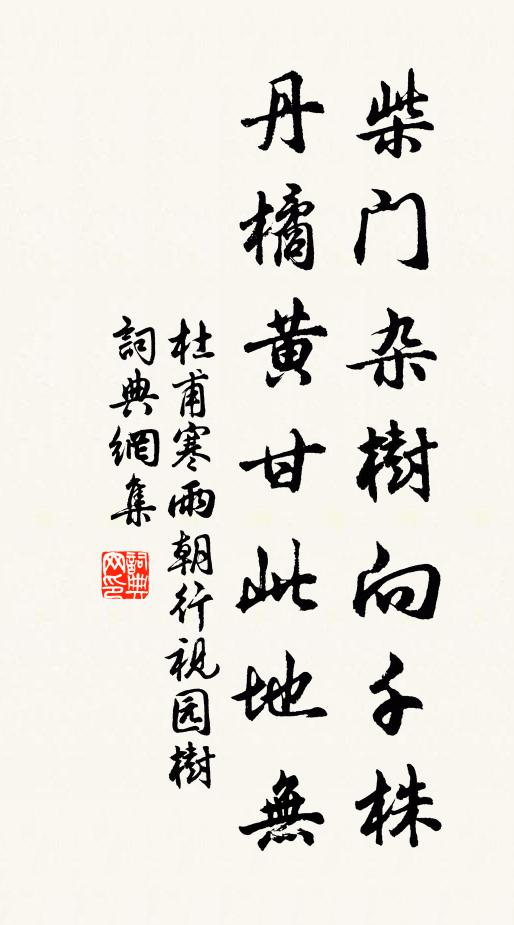 柴门杂樹向千株
丹橘黄甘此地無
杜甫寒雨朝行视园樹
詞典網集
詞典网印